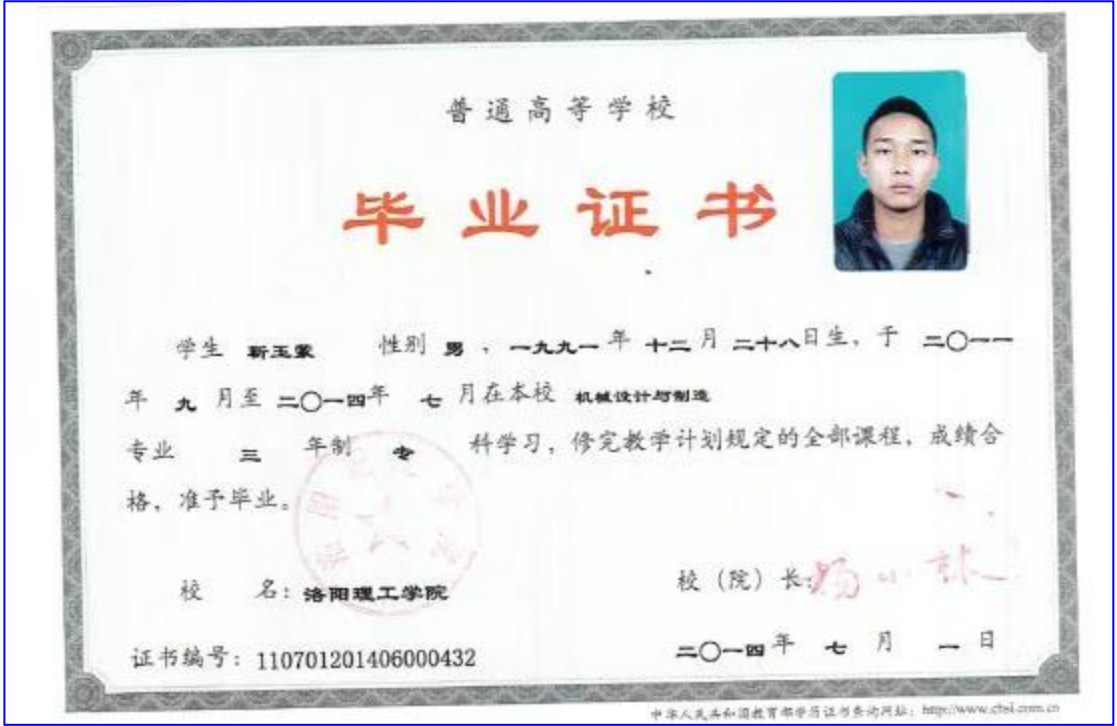 普通高等学校
毕业证书
学生 靳玉蒙 性别 男 ，一九九一 年 十二 月 二十八日生，于 二〇一一
年 九 月至 二〇一四年 七 月在本校 机械设计与制造
专业 三 年制 专 科学习，修完教学计划规定的全部课程，成绩合
格，准予毕业。
校 名：洛阳理工学院
校（院）长：杨小林
证书编号：110701201406000432
二〇一四年 七 月 一 日
中华人民共和国教育部学历证书查询网址：http://www.chsi.com.cn